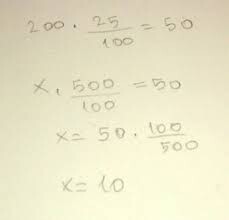 200 · 25/100 = 50
x · 500/100 = 50
x = 50 · 100/500
x = 10